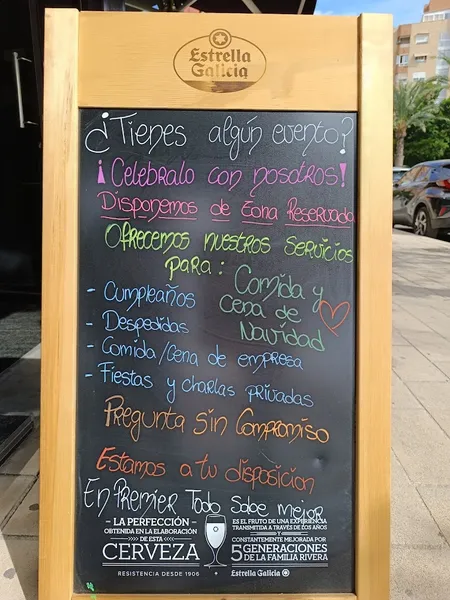 Estrella
Galicia
¿Tienes algún evento?
¡Celebralo con nosotros!
Disponemos de Zona Reservada
Ofrecemos nuestros servicios
para:
Comida y
cena de
Navidad
- Cumpleaños
- Despedidas
- Comida/Cena de empresa
- Fiestas y charlas privadas
Pregunta Sin Compromiso
Estamos a tu disposicion
En Premier Todo Sabe mejor
- LA PERFECCIÓN -
OBTENIDA EN LA ELABORACIÓN
DE ESTA
CERVEZA
RESISTENCIA DESDE 1906
ES EL FRUTO DE UNA EXPERIENCIA
TRANSMITIDA A TRAVÉS DE LOS AÑOS
Y
CONSTANTEMENTE MEJORADA POR
5 GENERACIONES
DE LA FAMILIA RIVERA
Estrella Galicia